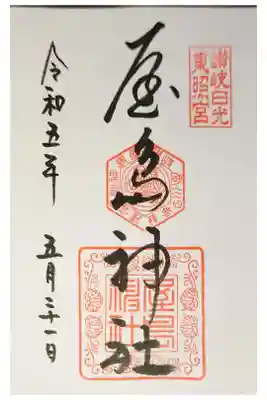 讃岐日光
東照宮
屋島神社
令和五年
五月二十一日
屋島
神社